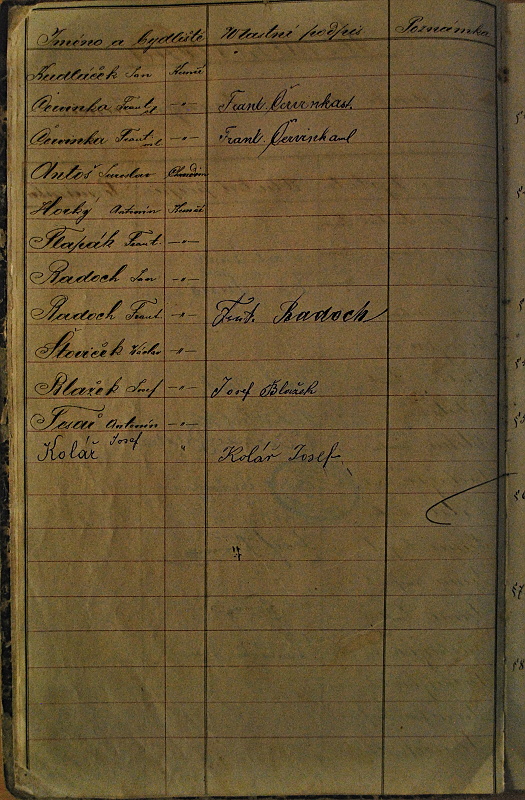 Jméno a bydliště Vlastní podpis Poznámka
Kudláček Jan
Červinka Frant. st. —„— Frant. Červinka st.
Červinka Frant. ml. —„— Frant. Červinka ml
Antoš Jaroslav
Horký Antonín
Šlapák Frant. —„—
Radoch Jan —„—
Radoch Frant —„— Frant. Radoch
Šťovíček Václav —„—
Blažek Josef —„— Josef Blažek
Tesař Antonín —„—
Kolář Josef „ Kolář Josef